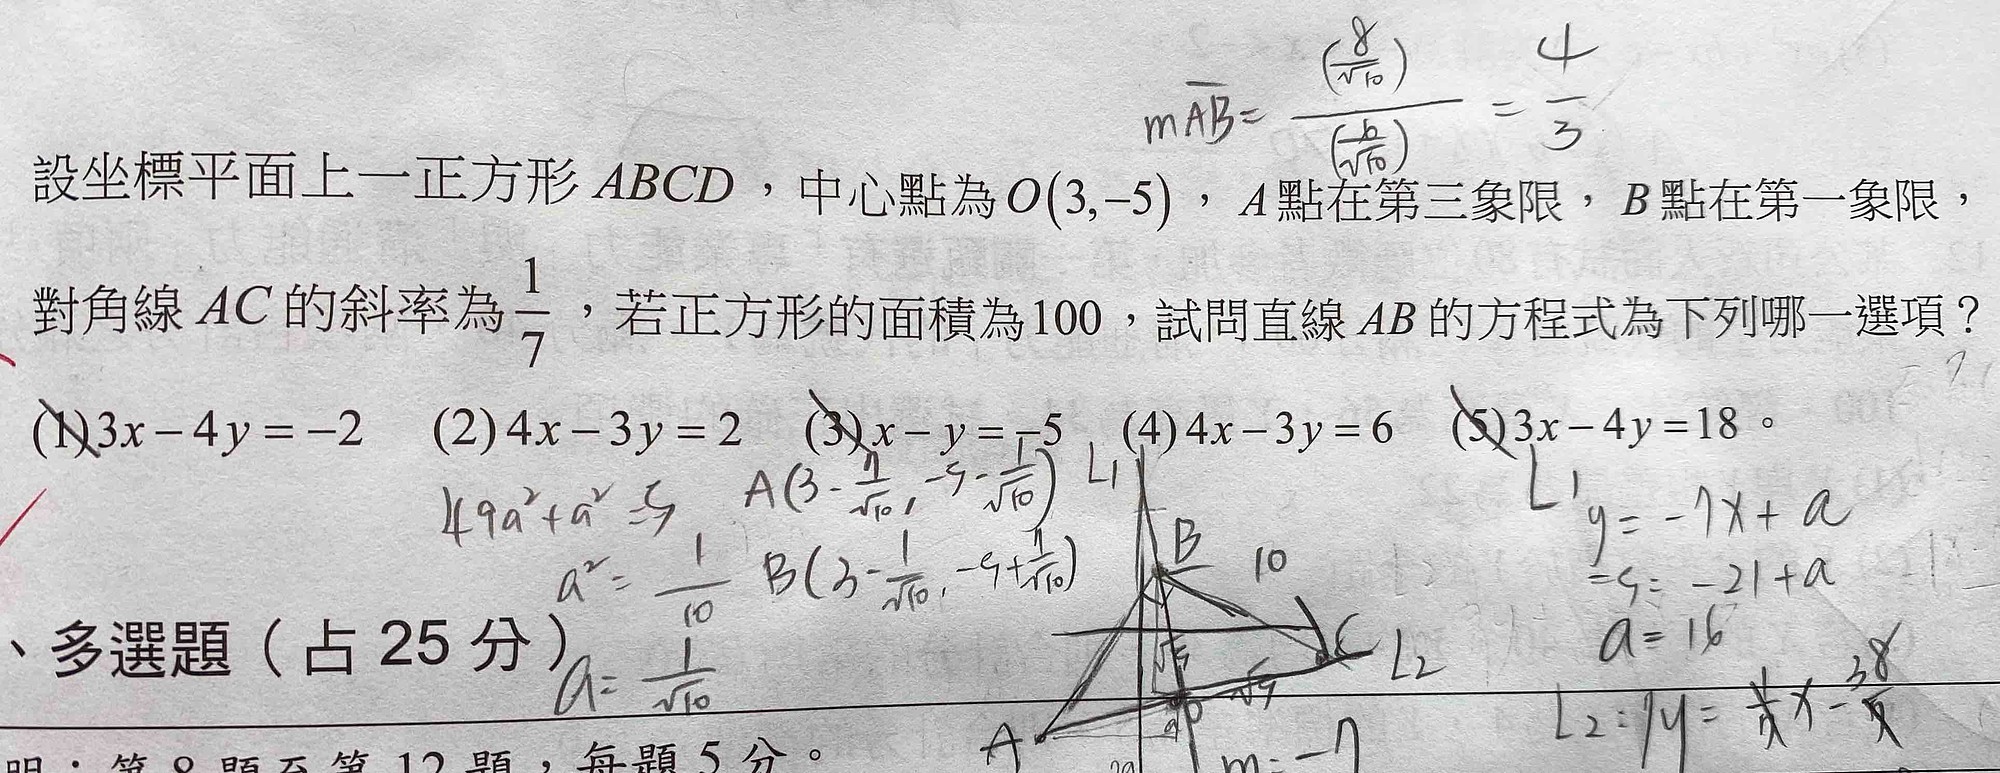 mAB = (8/√10) / (6/√10) = 4/3
設坐標平面上一正方形 ABCD，中心點為 O(3,−5)，A 點在第三象限，B 點在第一象限，
對角線 AC 的斜率為 1/7，若正方形的面積為100，試問直線 AB 的方程式為下列哪一選項？
(1) 3x − 4y = −2 (2) 4x − 3y = 2 (3) x − y = −5 (4) 4x − 3y = 6 (5) 3x − 4y = 18。
49a² + a² = 5
A(3 − 7/√10, −5 − 1/√10)
L1
L1 y = −7x + a
a² = 1/10
B(3 − 1/√10, −5 + 7/√10)
B
10
−5 = −21 + a
a = 16
、多選題（占 25 分）
a = 1/√10
C
L2
L2: 7y = x − 38
A
m = −7
明：第 8 題至第 12 題，每題 5 分。